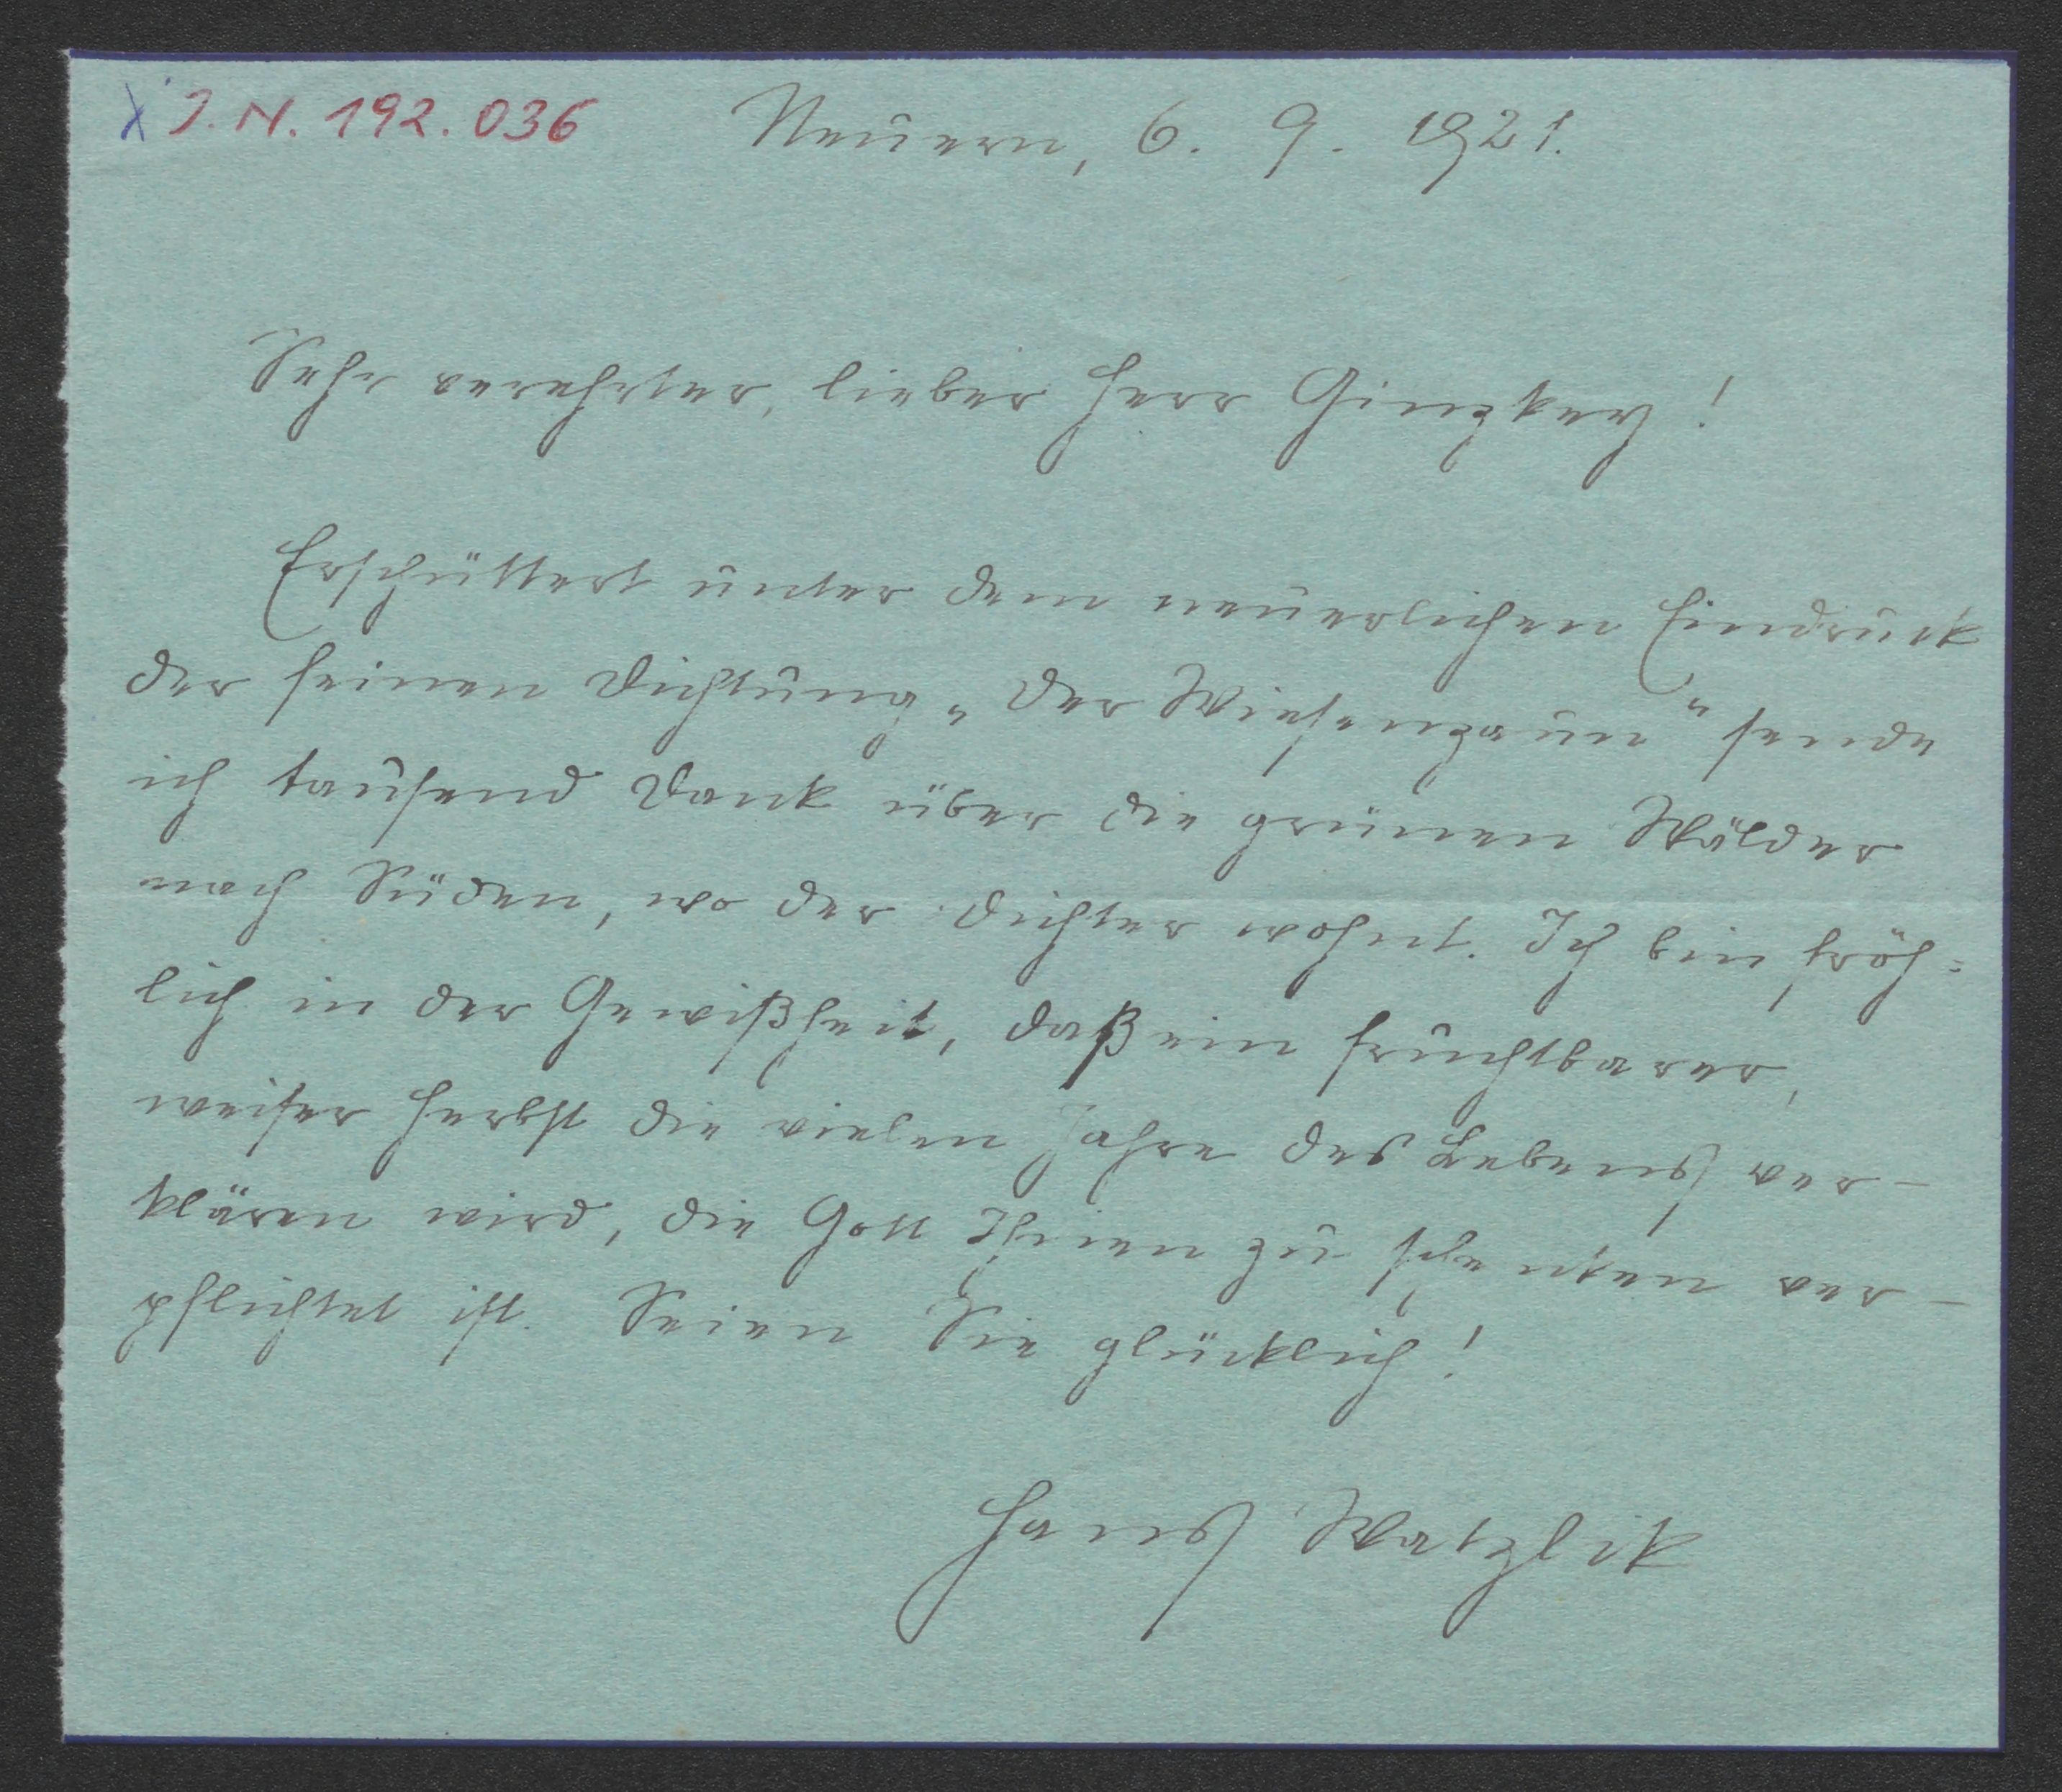 X I. N. 192.036
Neuern, 6. 9. 1921.
Sehr verehrter, lieber Herr Ginzkey!
Erschüttert unter dem neuerlichen Eindruck
der feinen Dichtung „Der Wiesenzaun“ sende
ich tausend Dank über die grünen Wälder
nach Süden, wo der Dichter wohnt. Ich bin fröh=
lich in der Gewißheit, daß ein fruchtbarer,
weiser Herbst die vielen Jahre des Lebens ver-
klären wird, die Gott Ihnen zu schenken ver-
pflichtet ist. Seien Sie glücklich!
Hans Watzlik